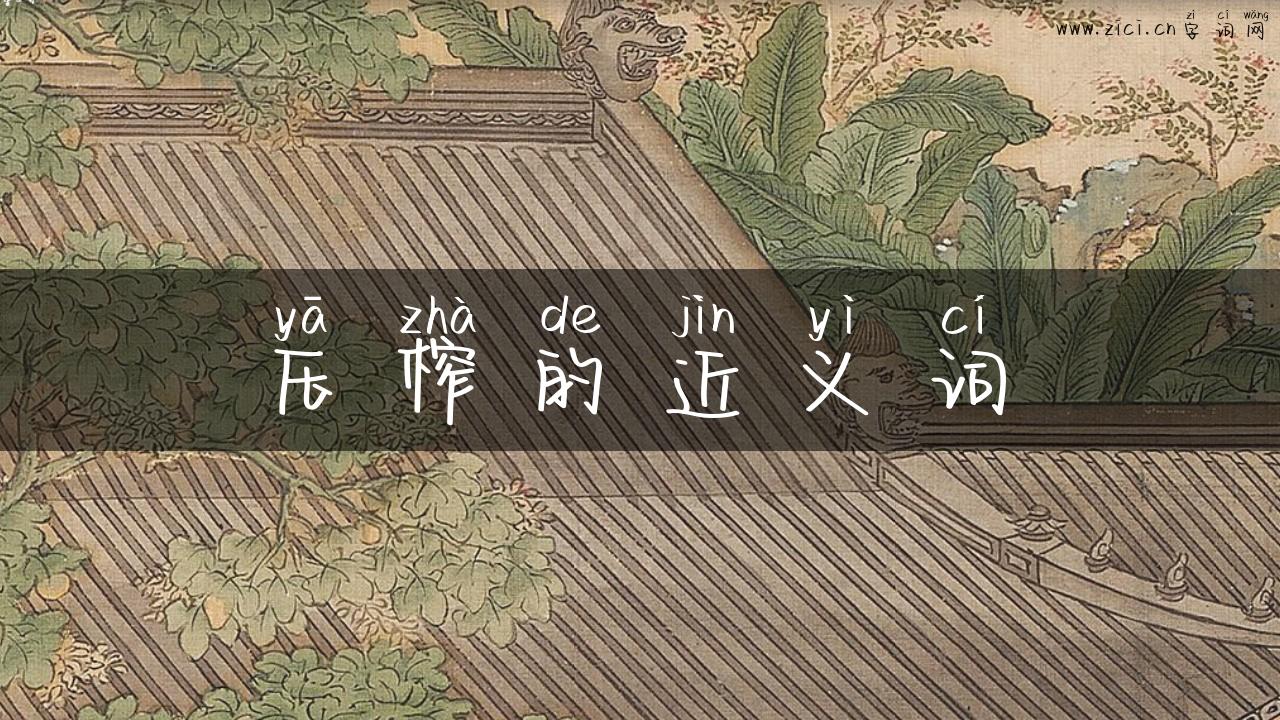 zì cí wǎng
www.zici.cn 字词网
yā zhà de jìn yì cí
压榨的近义词